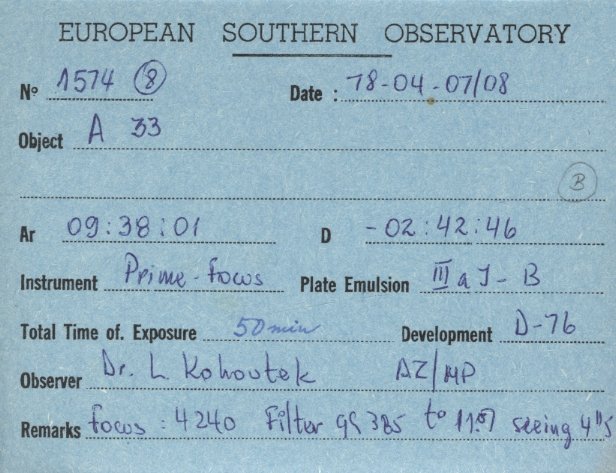 EUROPEAN SOUTHERN OBSERVATORY
Nº 1574 (8) Date : 78-04-07/08
Object A 33
B
Ar 09:38:01 D -02:42:46
Instrument Prime-focus Plate Emulsion III a J - B
Total Time of. Exposure 50 min Development D-76
Observer Dr. L Kohoutek AZ/MP
Remarks focus : 4240 Filter GG 385 tº 11.º7 seeing 4"5